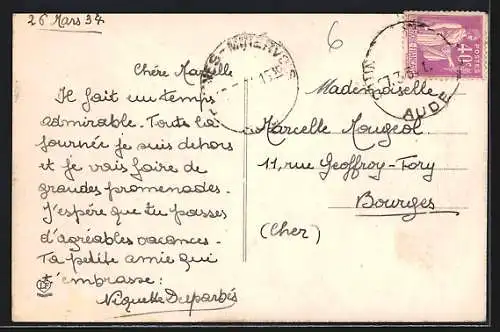 26 Mars 34
Chère Marcelle
Il fait un temps
admirable. Toute la
journée je suis dehors
et je vais faire de
grandes promenades.
J'espère que tu passes
d'agréables vacances.
Ta petite amie qui
t'embrasse:
Niquette Desparbès
6
Mademoiselle
Marcelle Mougeol
11, rue Geoffroy-Tory
Bourges
(Cher)
MINERVOIS
AUDE
POSTES
40c